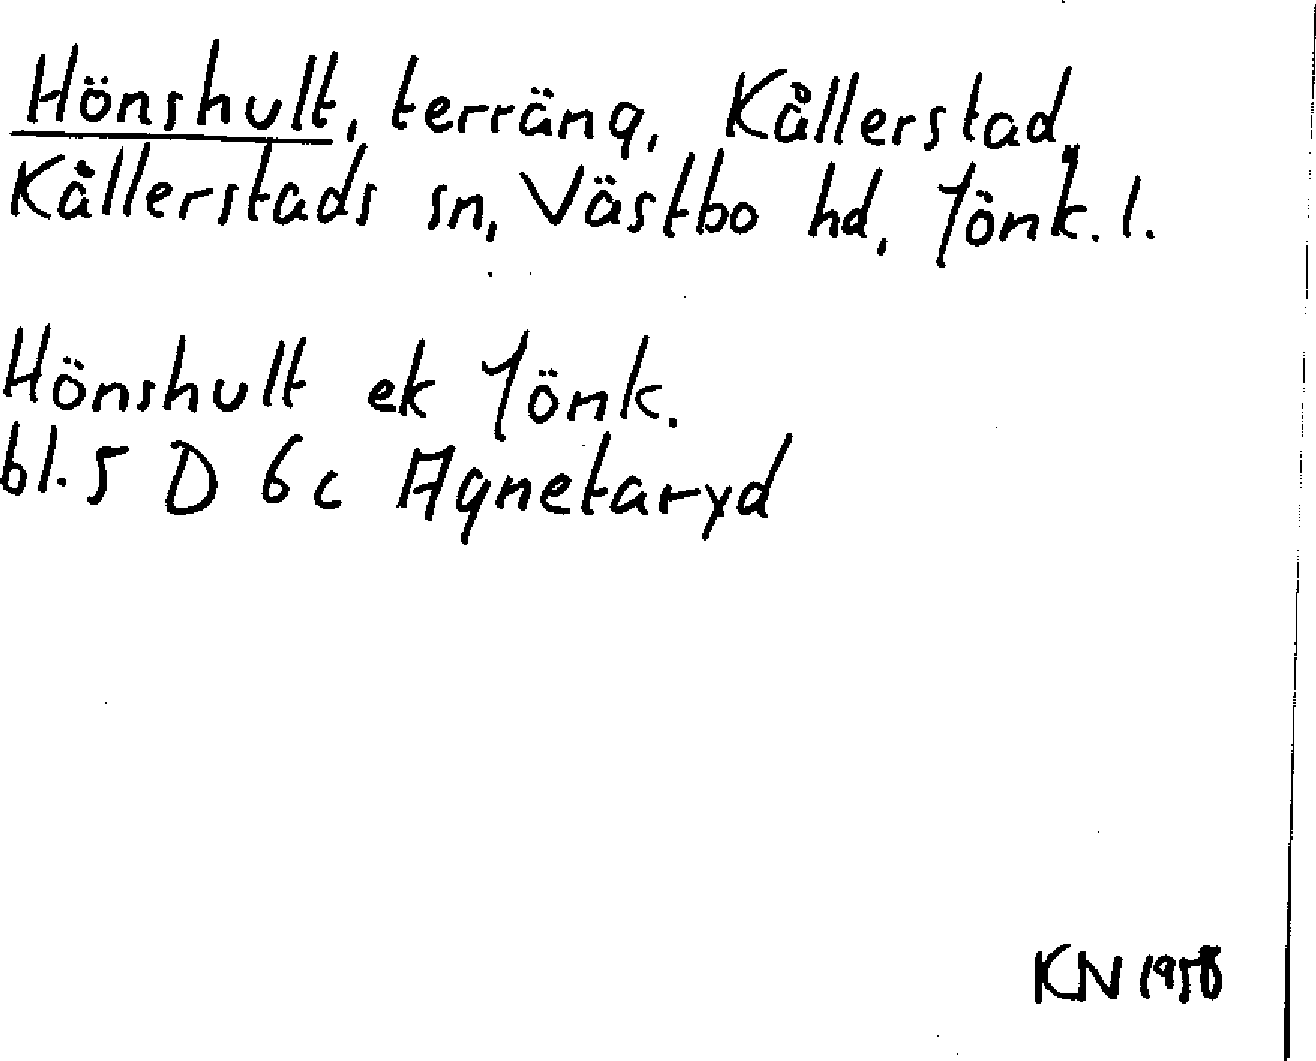 Hönshult, terräng, Kållerstad,
Kållerstads sn, Västbo hd, Jönk. l.
Hönshult ek Jönk.
bl. 5 D 6c Agnetaryd
KN 1958